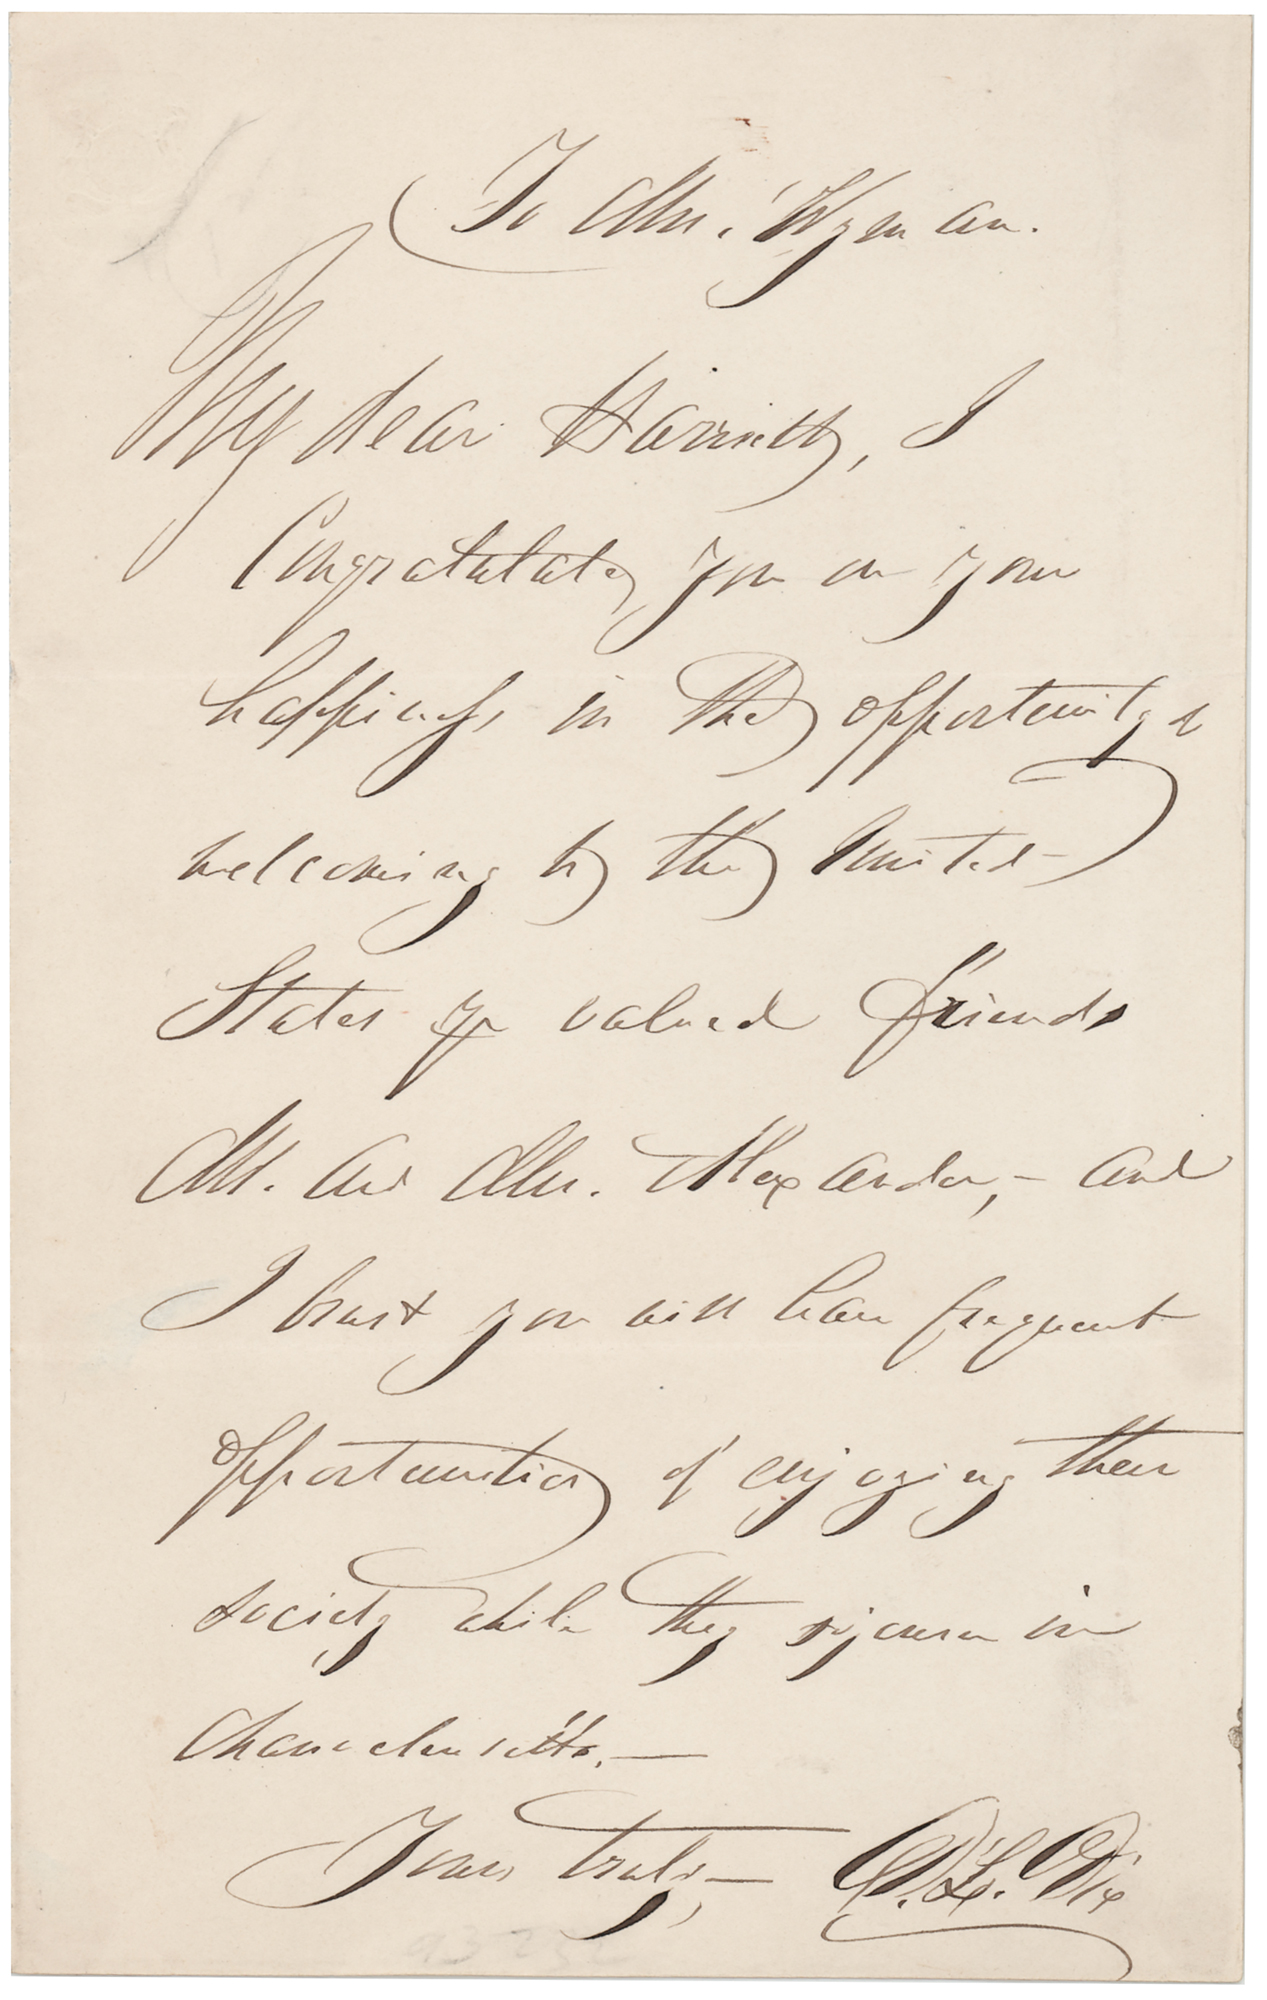 To Mrs. Wyman.
My dear Harriett, I
Congratulate you on your
happiness in the opportunity &
welcoming to the United
States of valued friends
Mr. and Mrs. Alexander, – and
I trust you will have frequent
opportunities of enjoying their
society while they sojourn in
Massachusetts. —
Yours truly, — D. L. Dix
93252